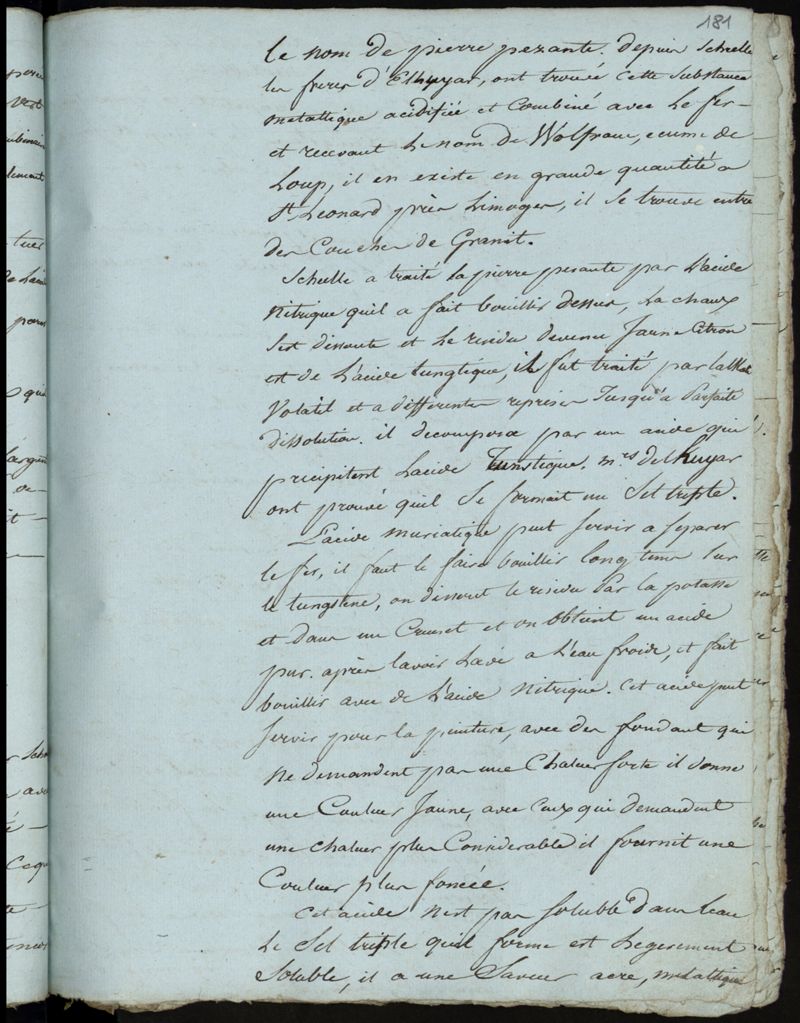 181
le nom de pierre pezante. depuis Schelle
les freres d'Elhuyar, ont trouvé cette substance
metallique acidifiée et Combiné avec le fer
et recevant le nom de Wolfram, ecume de
Loup, il en existe en grande quantité a
St Leonard près Limoges, il se trouve entre
des Couches de Granit.
Schelle a traité la pierre pesante par l'acide
Nitrique quil a fait bouillir dessus, la chaux
sest dissoute et le residu devenu Jaune Citron
est de l'acide tungtique, il fut traité par lalkali
Volatil et a differentes reprises Jusqu'a Parfaite
dissolution. il decomposa par un acide qui
précipitent Lacide Tunstique. mrs delhuyar
ont prouvé quil se formait un Sel triple.
L'acide muriatique peut servir a separer
le fer, il faut le faire bouillir longtems sur
le tungstene, on dissout le residu Par la potasse
et dans un Creuset et on obtient un acide
pur. après lavoir Lavé a L'eau froide, et fait
bouillir avec de L'acide Nitrique. Cet acide peut
servir pour la peinture, avec des fondant qui
Ne demandent pas une Chaleur forte il donne
une Couleur Jaune, avec Ceux qui demandent
une chaleur plus Considerable il fournit une
Couleur plus foncée.
Cet acide N'est pas soluble dans leau
Le Sel triple quil forme est Legerement
Soluble, il a une Saveur acre, metallique